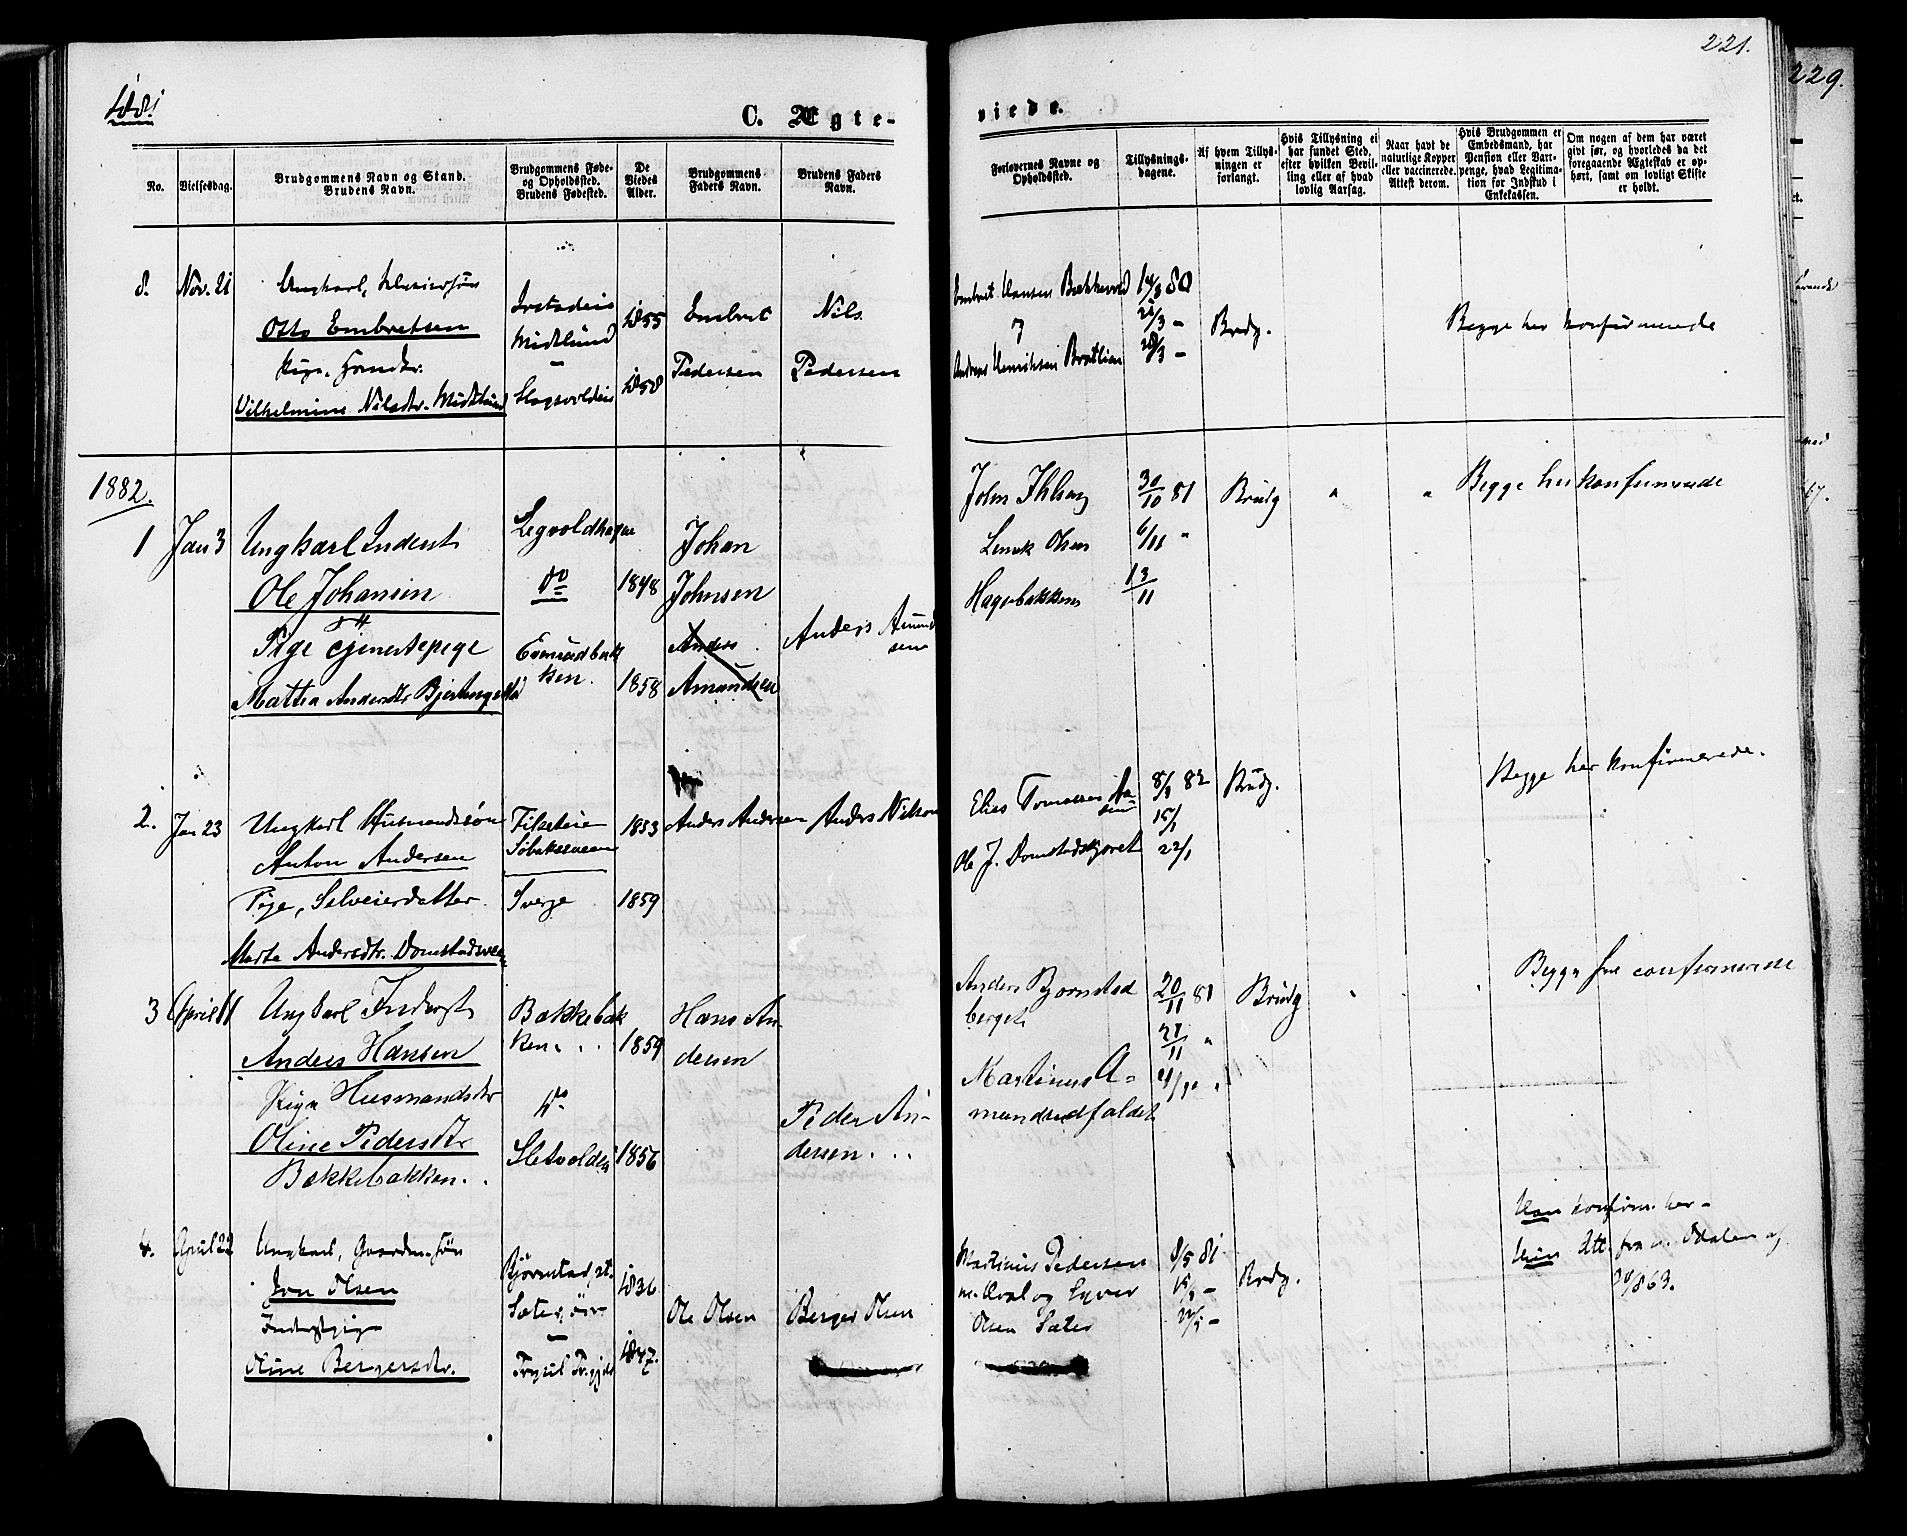 1881
221.
229.
C. Ægte-
viede.
No.
Vielsesdag.
Brudgommens Navn og Stand.
Brudens Navn.
Brudgommens Føde-
og Opholdssted.
Brudens Fødested.
De
Viedes
Alder.
Brudgommens
Faders Navn.
Brudens Faders
Navn.
Forlovernes Navne og
Opholdssted.
Tillysnings-
dagene.
Af hvem Tillys-
ningen er
forlangt.
Hvis Tillysning ei
har fundet Sted,
efter hvilken Bevil-
ling eller af hvad
lovlig Aarsag.
Naar havt de
naturlige Kopper
eller vaccinerede.
Attest derom.
Hvis Brudgommen er
Embedsmand, har
Pension eller Vart-
penge, hvad Legitima-
tion for Indskud i
Enkekassen.
Om nogen af dem har været
givt før, og hvorledes da det
foregaaende Ægteskab er op-
hørt, samt om lovligt Skifte
er holdt.
8. Nov. 21
Ungkarl, Selveiersøn
Otto Embretsen
Pige, Gaardtr.
Vilhelmine Nilsdtr. Midtlund
Midtlund
1855
1858
Embret
Pedersen
Nils
Pedersen
Embret Hansen Bækkevold
og
Andreas Henriksen Bratlien
14/3 80
21/3 -
28/3 -
Brudg.
Begge her konfirmerede
1882.
1 Jan 3
Ungkarl Inderst
Ole Johansen
Pige Tjenestepige
Mattea Andersdtr Bjertengestad
do
Evensedbak
ken.
1848
1858
Johan
Johnsen
Anders
Amundsen
Anders Amund
sen
John
Olsen
Hagebakken
30/10 81
6/11 "
13/11
Brudg " "
Begge her konfirmerede
2. Jan 23
Ungkarl Husmandssøn
Anton Andersen
Pige, Selveierdatter
Marte Andersdtr. Domstadsveen
Sverge
1853
1859
Anders Andersen
Anders Nilsen
Elias Tomassen
Ole J. Domstadskjøret
8/1 82
15/1
22/1
Brudg.
Begge her konfirmerede.
3 April 11
Ungkarl Inderst
Anders Hansen
Pige Husmandsdtr
Oline Pedersdtr
Bækkebakken.
Bækkebak
ken.
do
Sletvolden
1859
1856
Hans An
dersen
Peder An-
dersen
Anders Bjørnstad
berget
Martinus A-
mundsedfaldet
20/11 81
27/11 "
4/12 "
Brudg
Begge her confirmerede
4. April 22
Ungkarl, Gaardm.søn
Jon Olsen
Inderstpige
Oline Bergersdtr.
Bjørnstad, st.
Sæter,
Trysil
1836
1847.
Ole Olsen
Berger Olsen
Martinus Pedersen
og Syver
Olsen Sæter
8/5 81
15/5 -
22/5 -
Brudg.
Han konfirm. her -
Hun Att. fra Odalen af
863.